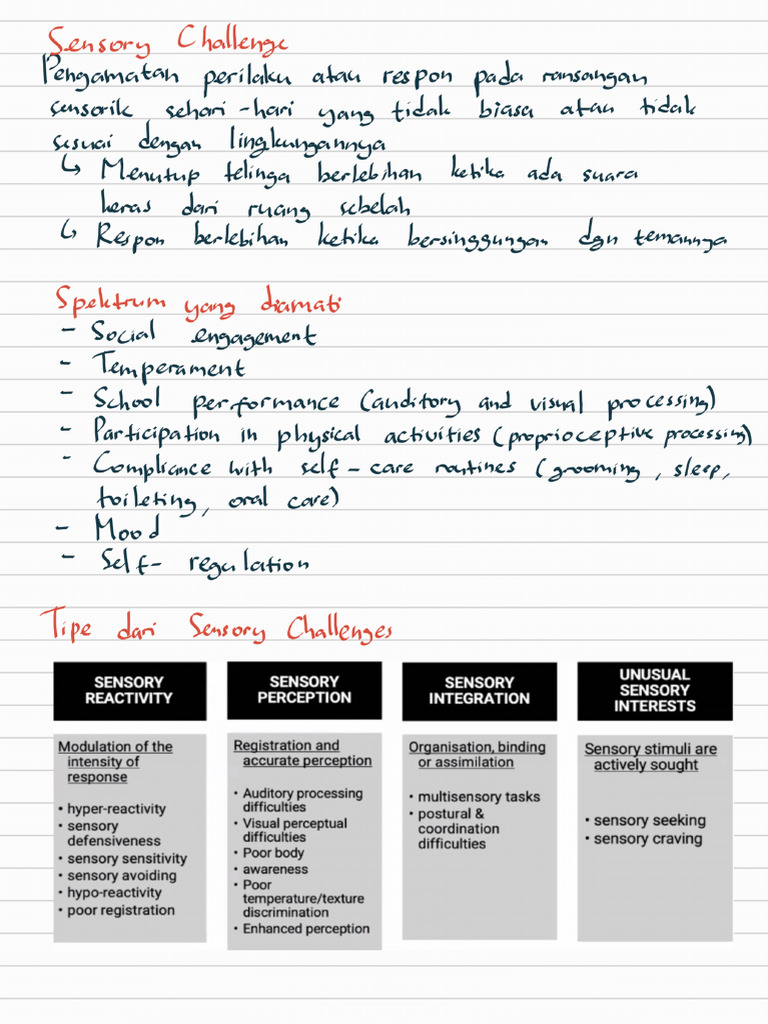 Sensory Challenge
Pengamatan perilaku atau respon pada ransangan
sensorik sehari-hari yang tidak biasa atau tidak
sesuai dengan lingkungannya
↳ Menutup telinga berlebihan ketika ada suara
keras dari ruang sebelah
↳ Respon berlebihan ketika bersinggungan dgn temannya
Spektrum yang diamati
- Social engagement
- Temperament
- School performance (auditory and visual processing)
- Participation in physical activities (proprioceptive processing)
- Compliance with self-care routines (grooming, sleep,
toileting, oral care)
- Mood
- Self-regulation
Tipe dari Sensory Challenges
SENSORY
REACTIVITY
Modulation of the
intensity of
response
• hyper-reactivity
• sensory
defensiveness
• sensory sensitivity
• sensory avoiding
• hypo-reactivity
• poor registration
SENSORY
PERCEPTION
Registration and
accurate perception
• Auditory processing
difficulties
• Visual perceptual
difficulties
• Poor body
• awareness
• Poor
temperature/texture
discrimination
• Enhanced perception
SENSORY
INTEGRATION
Organisation, binding
or assimilation
• multisensory tasks
• postural &
coordination
difficulties
UNUSUAL
SENSORY
INTERESTS
Sensory stimuli are
actively sought
• sensory seeking
• sensory craving